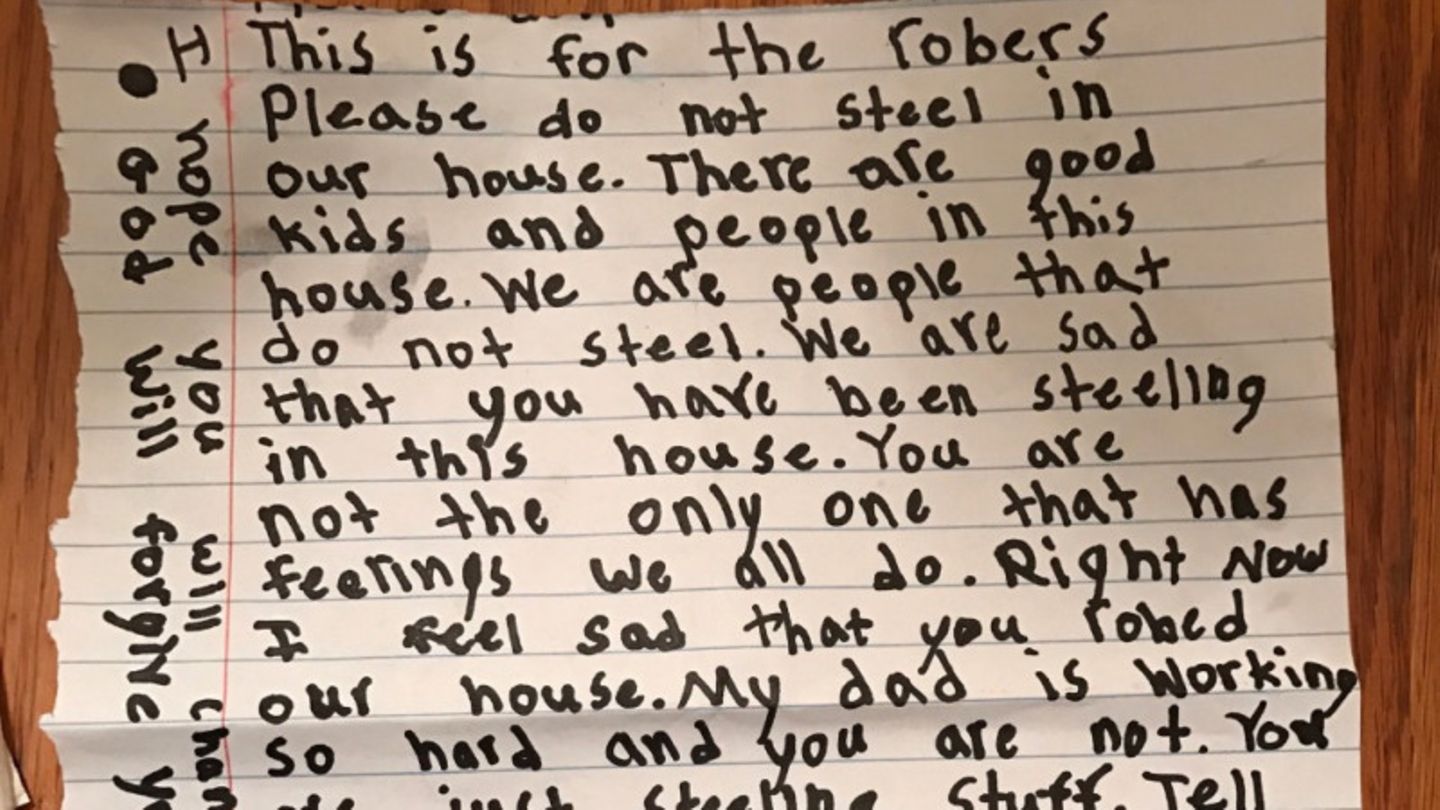 This is for the robers
Please do not steel in
our house. There are good
kids and people in this
house. We are people that
do not steel. We are sad
that you have been steeling
in this house. You are
not the only one that has
feelings we all do. Right Now
I feel sad that you robed
our house. My dad is working
so hard and you are not. You
are just steeling stuff. Tell
I hope you will chan
. God will forgive yo